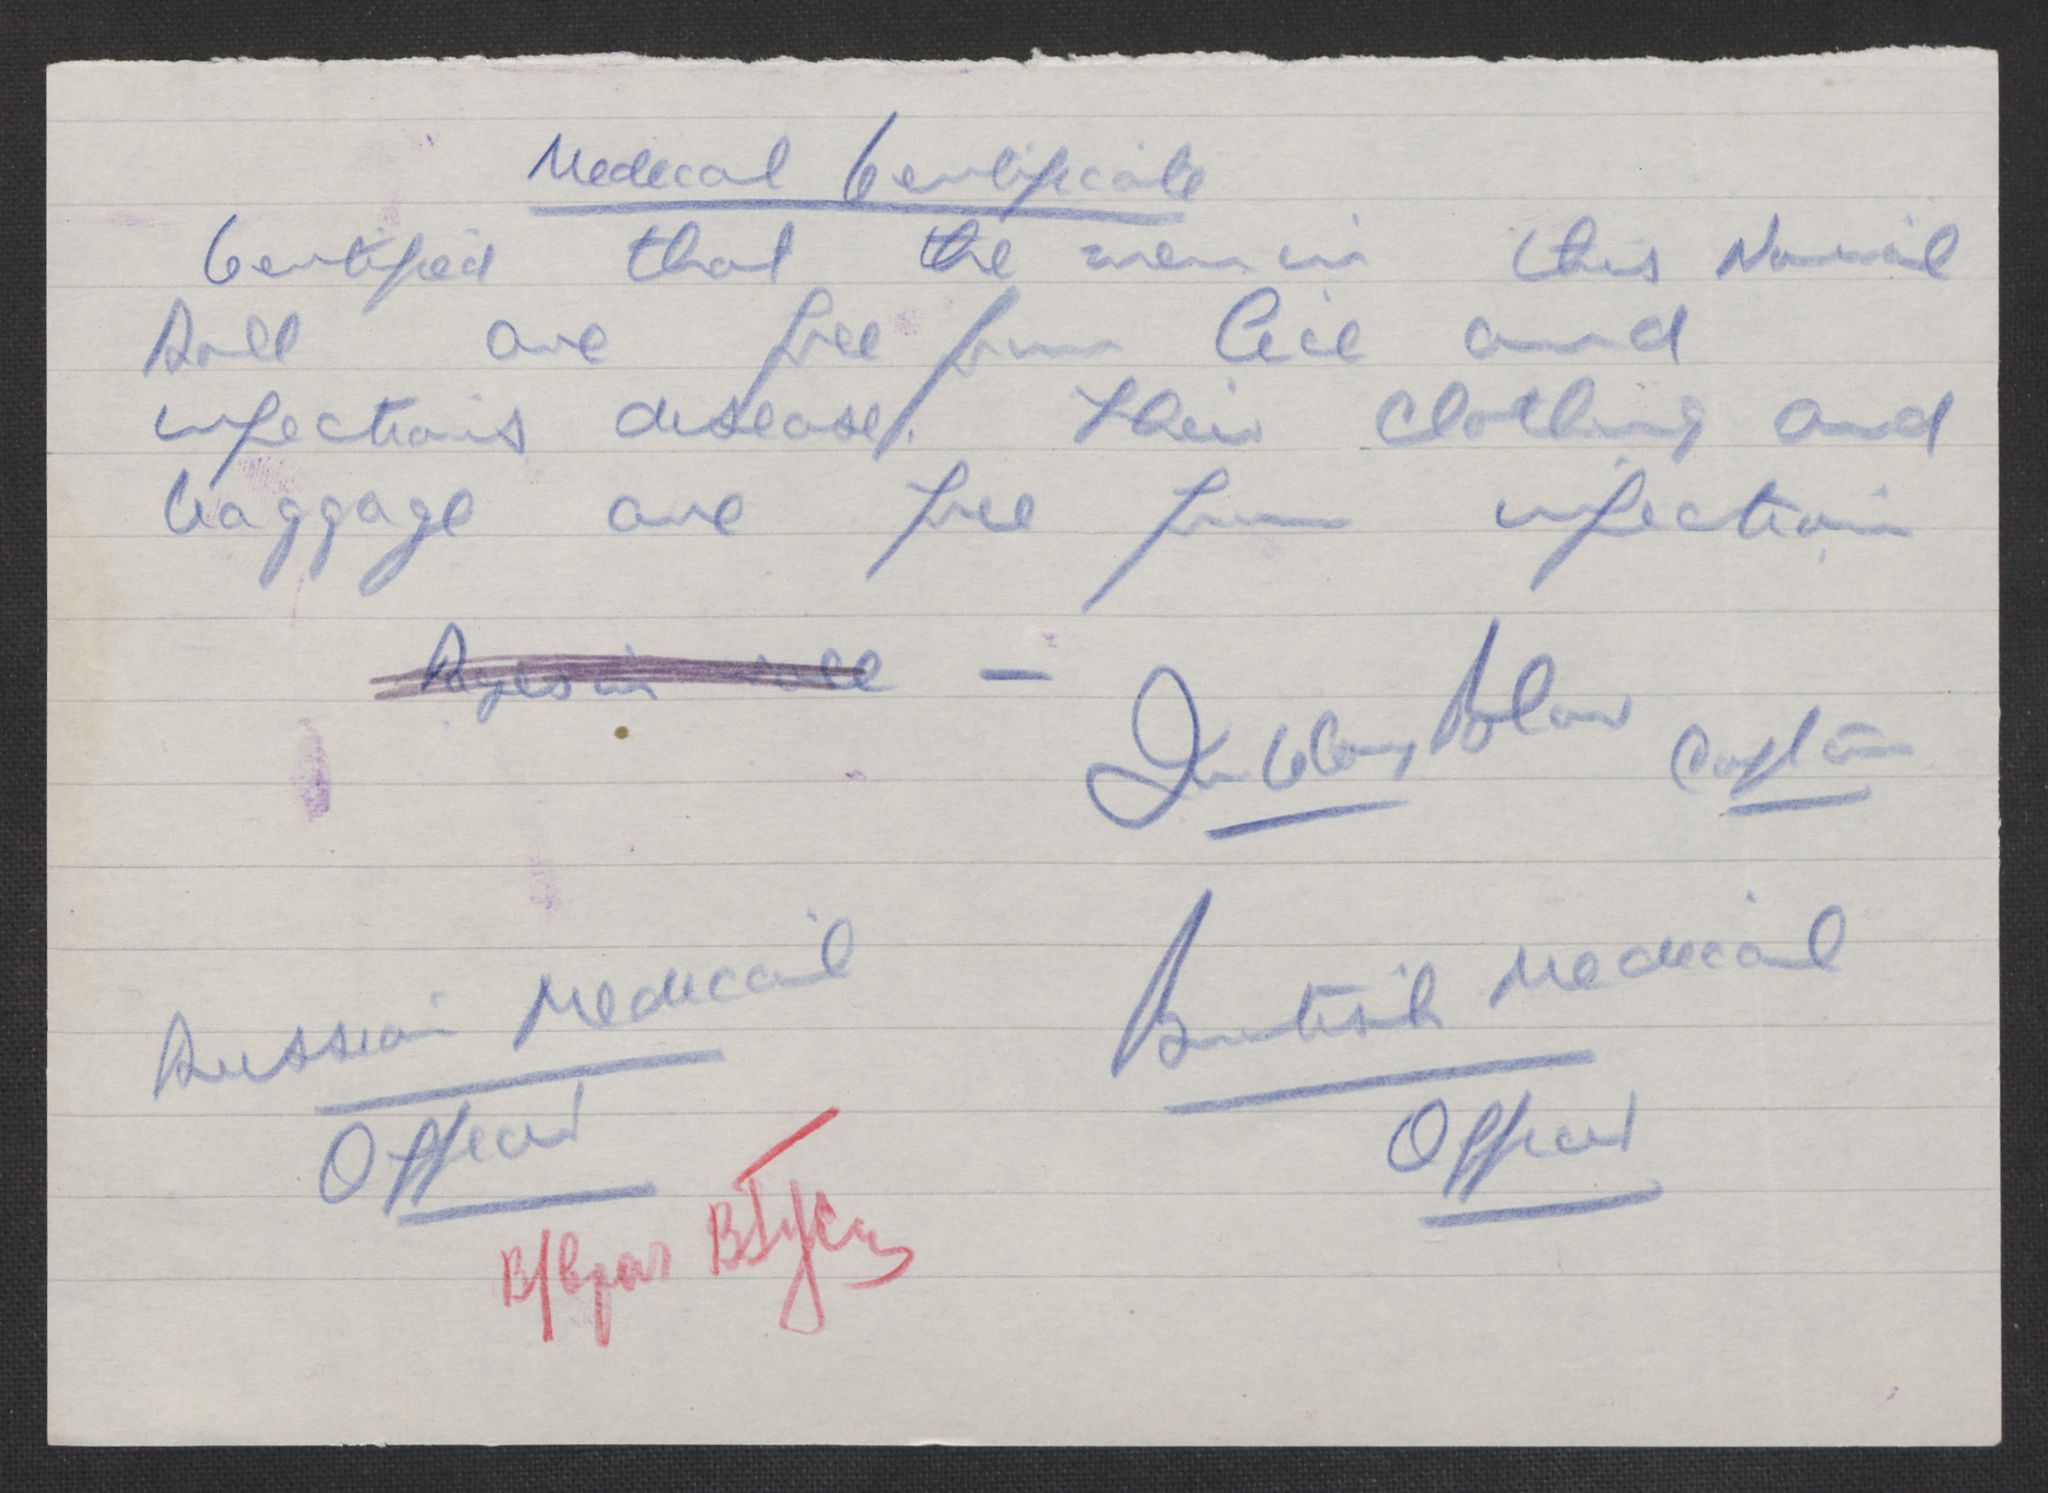 Medical Certificate
Certified that the men in this Nominal
Roll are free from lice and
infectious disease. Their clothing and
baggage are free from infection
Pages in roll —
Blair Captain
Russian Medical British Medical
Officer Officer
В/врач